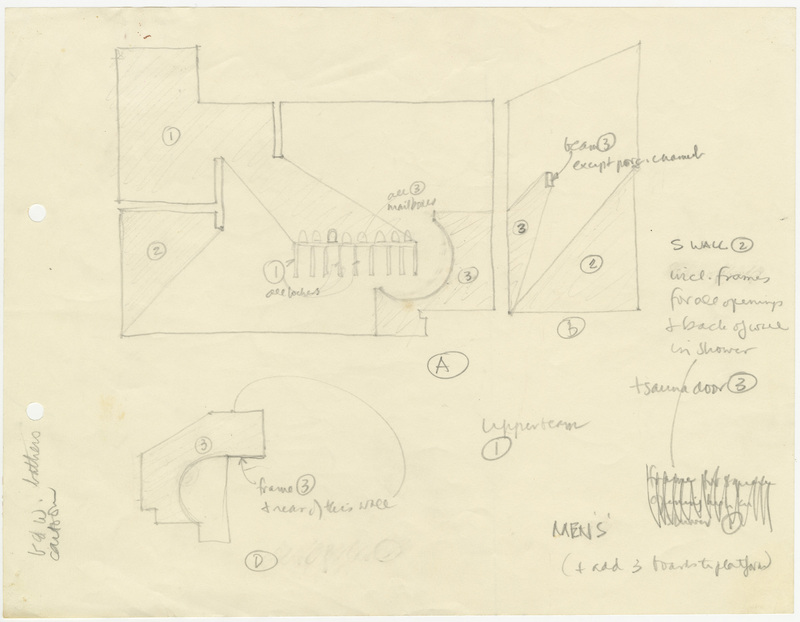 1
2
all 3
mailboxes
1
all lockers
3
A
beam 3
except posse. channel
3
2
b
S WALL 2
incl. frames
for all openings
+ back of wall
in shower
+ sauna door 3
3
frame 3
+ rear of this wall
D
upper beam
1
MEN'S
(+ add 3 boards to platform)